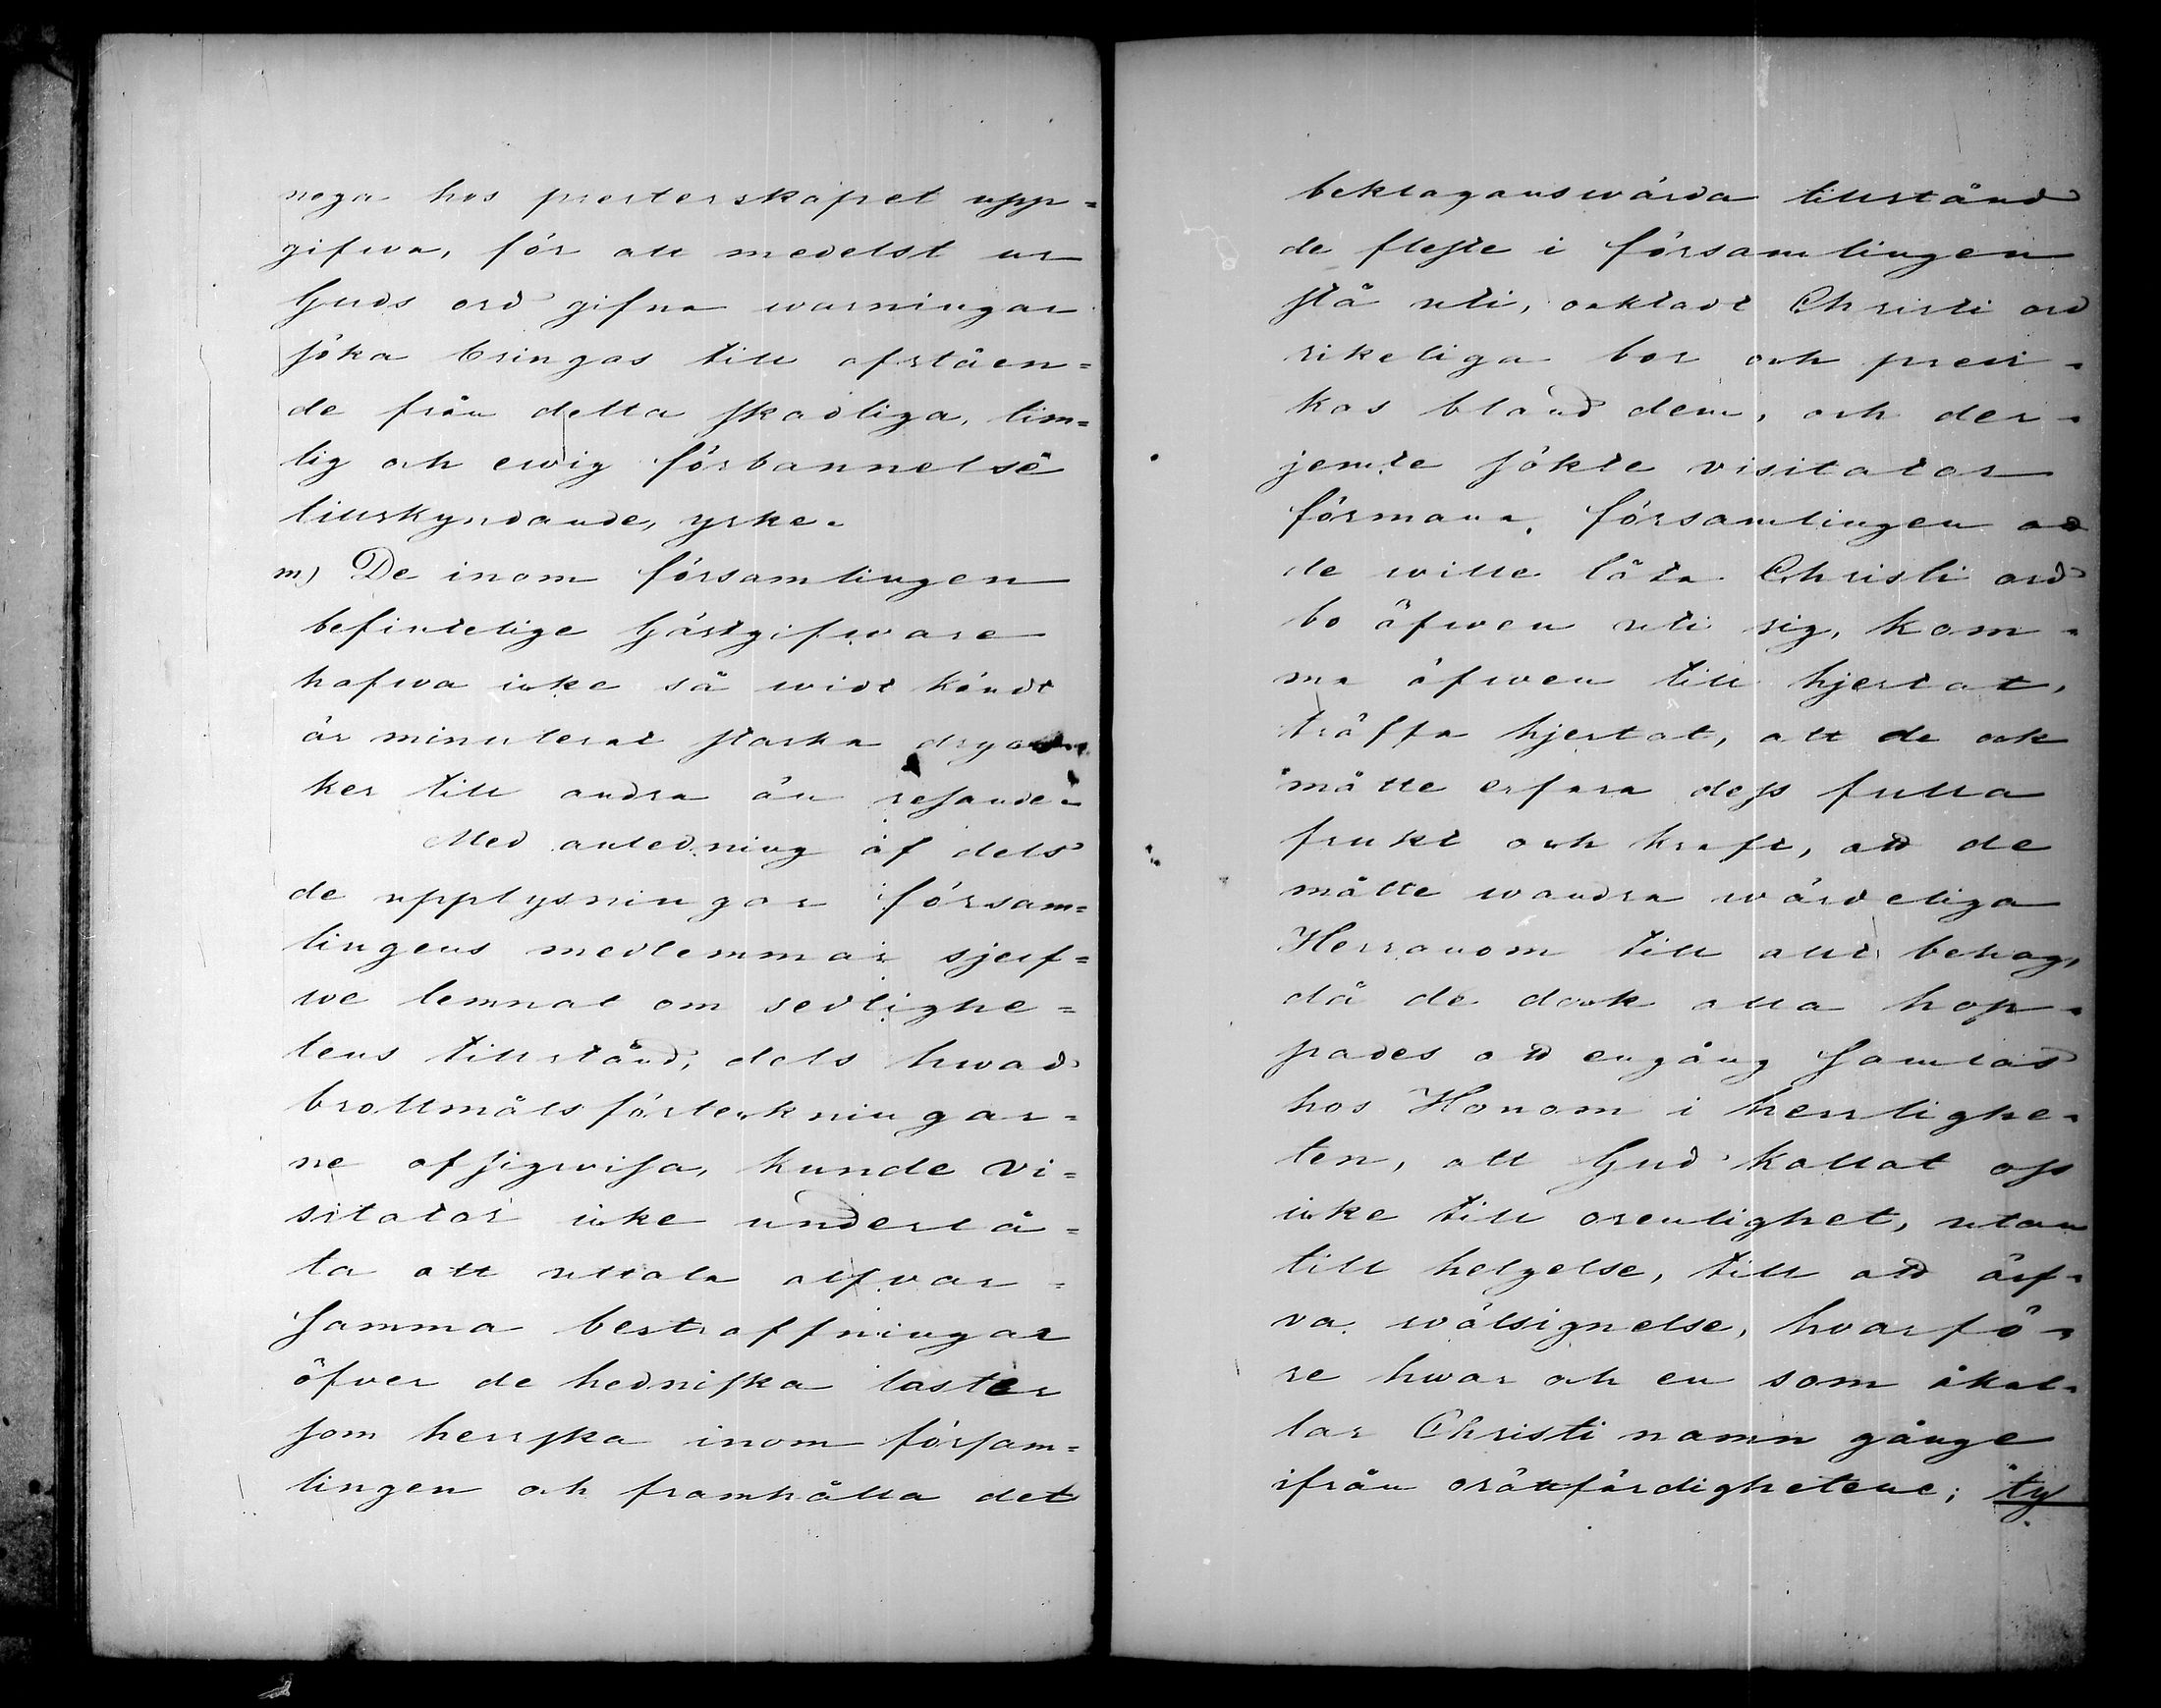 nega hos presterskapet upp=
gifwa, för att medelst ur
Guds ord gifna warningar
söka bringas till afståen=
de från detta skadliga, tim=
lig och ewig förbannelse
tillskyndande, yrke.
m) De inom församlingen
befintelige Gästgifware
hafwa icke så widt kändt
är minuterat starka dryc
ker till andra än resande.
Med anledning af dels
de upplysningar försam=
lingens medlemmar sjelf=
we lemnat om sedlighe=
tens tillstånd, dels hwad
brottmålsförteckningar=
ne ofsigwisa, kunde Vi=
sitator icke underlå=
ta att uttala alfvar=
samma bestraffningar
öfver de hedniska laster
som herrska inom försam=
lingen och framhålla det
beklaganswärda tillstånd
de fleste i församlingen
stå uti, oaktadt Christi ord
rikeliga bor och predi=
kas bland dem, och der=
jemte sökte visitator
förmana församlingen att
de wille låta Christi ord
bo äfwen uti sig, kom=
ma äfwen till hjertat,
träffa hjertat, att de ock
måtte erfara dess fulla
frukt och kraft, att de
måtte wandra wärdeliga
Herranom till allt behag,
då de dock alla hop=
pades att engång samlas
hos Honom i herrlighe=
ten, att Gud kallat oss
icke till orenlighet, utan
till helgelse, till att ärf=
va wälsignelse, hvarfö=
re hwar och en som åkal=
lar Christi namn gånge
ifrån orättfärdighetene; ty